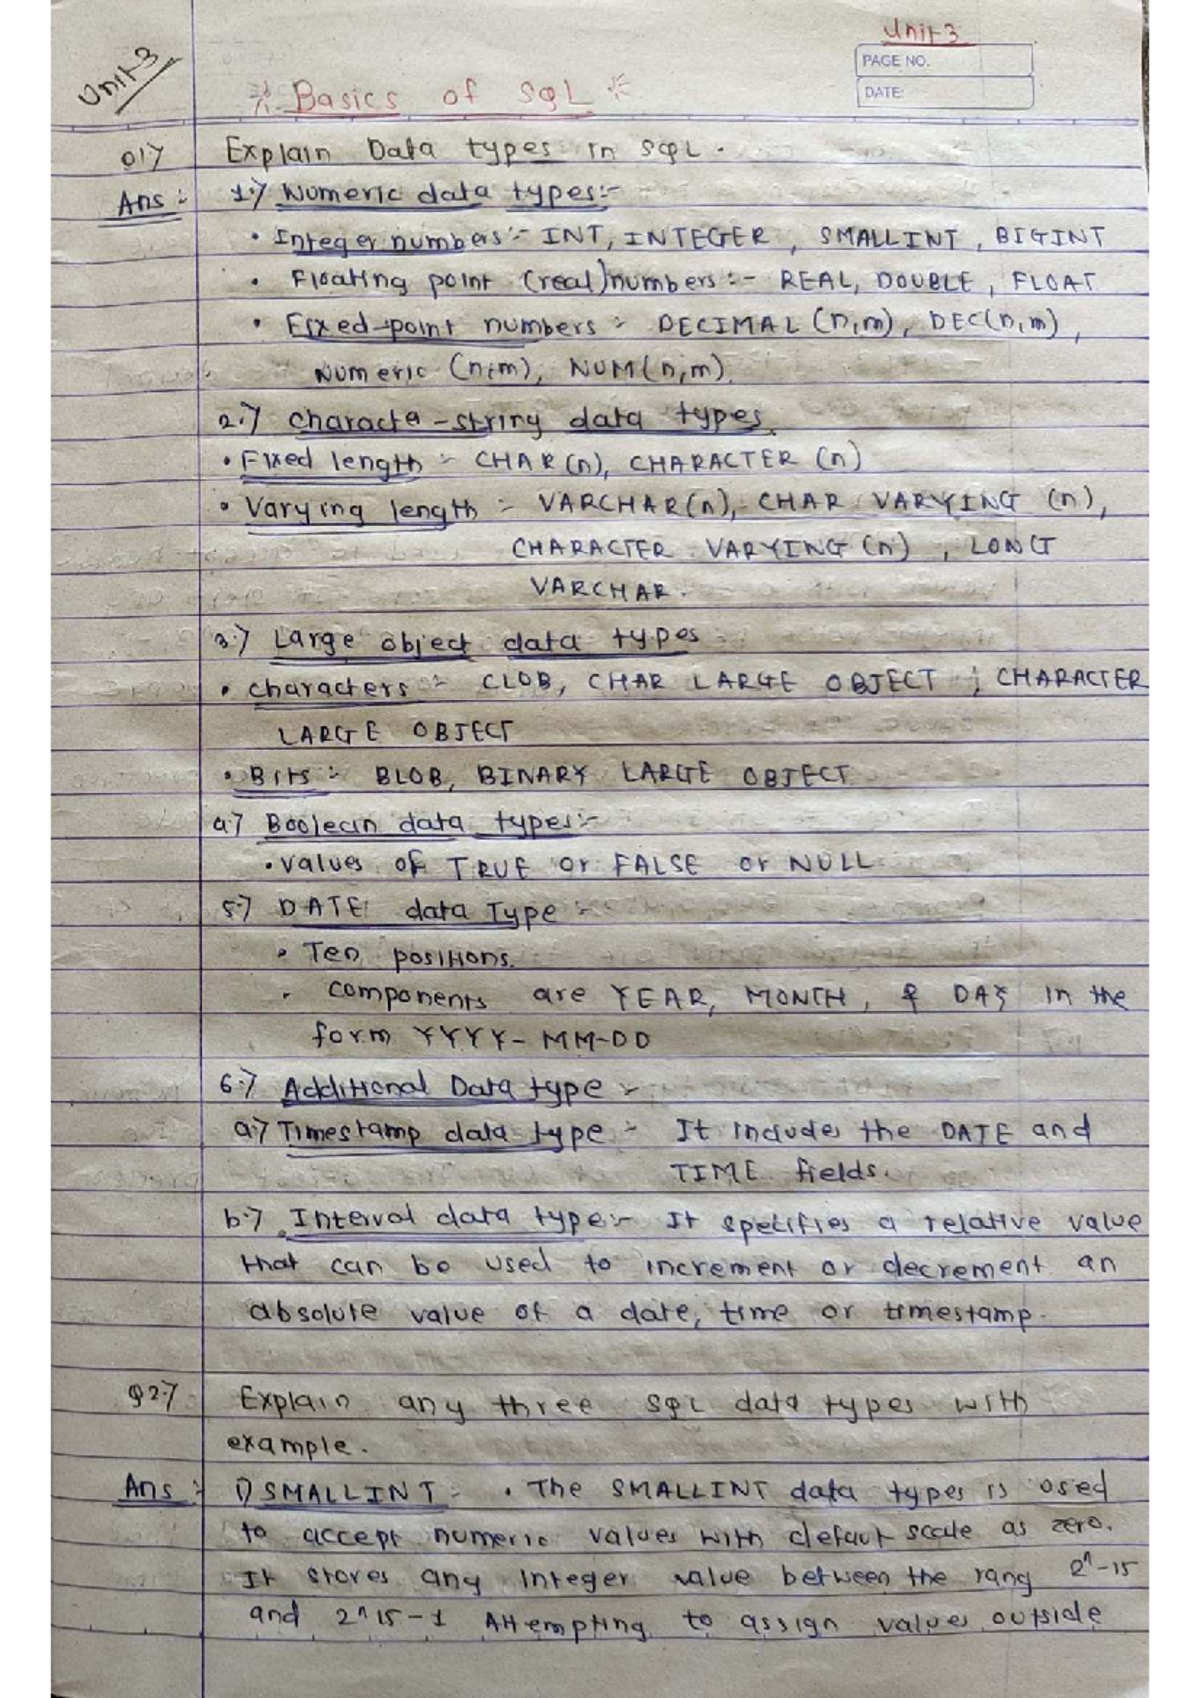 Unit 3
Unit-3
PAGE NO.
DATE:
Basics of SQL
Q1) Explain Data types in SQL.
Ans :- 1.) Numeric data types:-
• Integer numbers :- INT, INTEGER, SMALLINT, BIGINT
• Floating point (real) numbers :- REAL, DOUBLE, FLOAT
• Fixed-point numbers :- DECIMAL (n,m), DEC(n,m),
Numeric (n,m), NUM(n,m).
2.) characte-string data types.
• Fixed length :- CHAR(n), CHARACTER (n)
• Varying length :- VARCHAR(n), CHAR VARYING (n),
CHARACTER VARYING (n), LONG
VARCHAR.
3.) Large object data types
• characters :- CLOB, CHAR LARGE OBJECT, CHARACTER
LARGE OBJECT
• Bits :- BLOB, BINARY LARGE OBJECT
4.) Boolean data types:-
• values of TRUE or FALSE or NULL
5.) DATE data Type :-
• Ten positions.
• components are YEAR, MONTH, & DAY in the
form YYYY-MM-DD
6.) Additional Data type :-
a.) Timestamp data type :- It includes the DATE and
TIME fields.
b.) Interval data type:- It specifies a relative value
that can be used to increment or decrement an
absolute value of a date, time or timestamp.
Q2.) Explain any three SQL data types with
example.
Ans :- 1) SMALLINT :- • The SMALLINT data types is used
to accept numeric values with defaut scale as zero.
It stores any Integer value between the rang 2^-15
and 2^15-1 Attempting to assign values outside